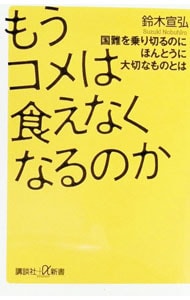 鈴木宣弘
Suzuki Nobuhiro
国難を乗り切るのに
ほんとうに
大切なものとは
もう
コメは
食えなく
なるのか
講談社+α新書